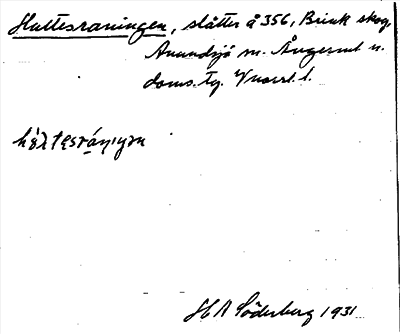 Hattesraningen, slåtter å 356, Brink skog,
Anundsjö m. Ångerml. n.
doms. Tg. Vnorrl. l.
H A Söderberg 1931